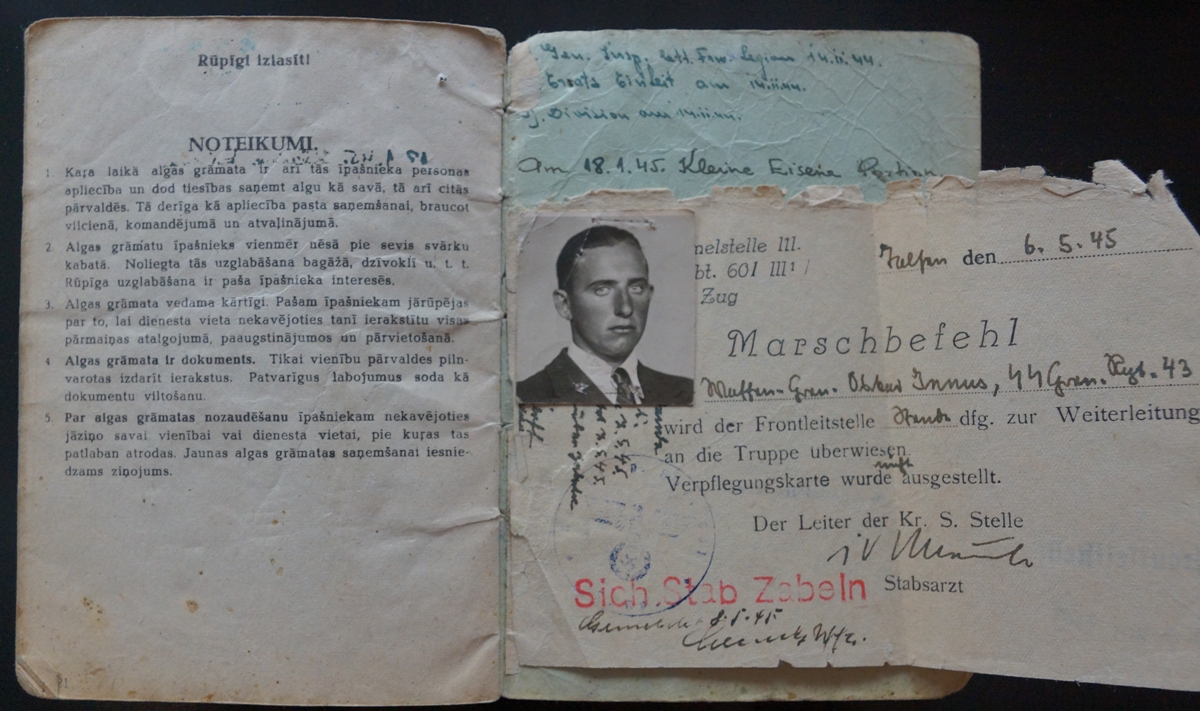 Rūpīgi izlasīt!
NOTEIKUMI.
1. Kaŗa laikā algas grāmata ir arī tās īpašnieka personas
apliecība un dod tiesības saņemt algu kā savā, tā arī citās
pārvaldēs. Tā derīga kā apliecība pasta saņemšanai, braucot
vilcienā, komandējumā un atvaļinājumā.
2. Algas grāmatu īpašnieks vienmēr nēsā pie sevis svārku
kabatā. Noliegta tās uzglabāšana bagāžā, dzīvoklī u. t. t.
Rūpīga uzglabāšana ir paša īpašnieka interesēs.
3. Algas grāmata vedama kārtīgi. Pašam īpašniekam jārūpējas
par to, lai dienesta vieta nekavējoties tanī ierakstītu visas
pārmaiņas atalgojumā, paaugstinājumos un pārvietošanā.
4. Algas grāmata ir dokuments. Tikai vienību pārvaldes piln-
varotas izdarīt ierakstus. Patvarīgus labojumus soda kā
dokumentu viltošanu.
5. Par algas grāmatas nozaudēšanu īpašniekam nekavējoties
jāziņo savai vienībai vai dienesta vietai, pie kuŗas tas
patlaban atrodas. Jaunas algas grāmatas saņemšanai iesnie-
dzams ziņojums.
Gen. Insp. lett. Frw. Legion 14.II.44.
Ersats Einheit am 14.II.44.
Division am 14.II.44.
Am 18.1.45 Kleine Eiserne Portion
melstelle III.
bt. 601 III
Zug
Talsen den 6.5.45
Marschbefehl
Waffen-Gren. Oskar Innus, 44 Gren. Regt. 43
wird der Frontleitstelle Stende dfg. zur Weiterleitung
an die Truppe uberwiesen.
nicht
Verpflegungskarte wurde ausgestellt.
Der Leiter der Kr. S. Stelle
iV
Stabsarzt
Sich. Stab Zabeln
8.5.45